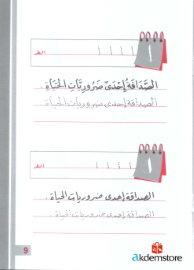 ا ا ا ا ا
الصَّدَاقَةُ إِحْدَى ضَرُورِيَّاتِ الحَيَاةِ
الصداقة إحدى ضروريات الحياة
ا ا ا ا ا
الصداقة إحدى ضروريات الحياة .
الصداقة إحدى ضروريات الحياة .
9
akdemstore